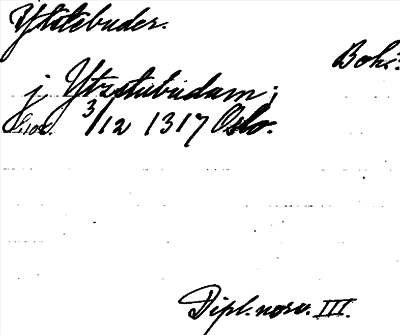 Ytstebuder.
Boh.
j Ytrstubudam;
3/12 1317 Oslo.
Dipl. norv. III.